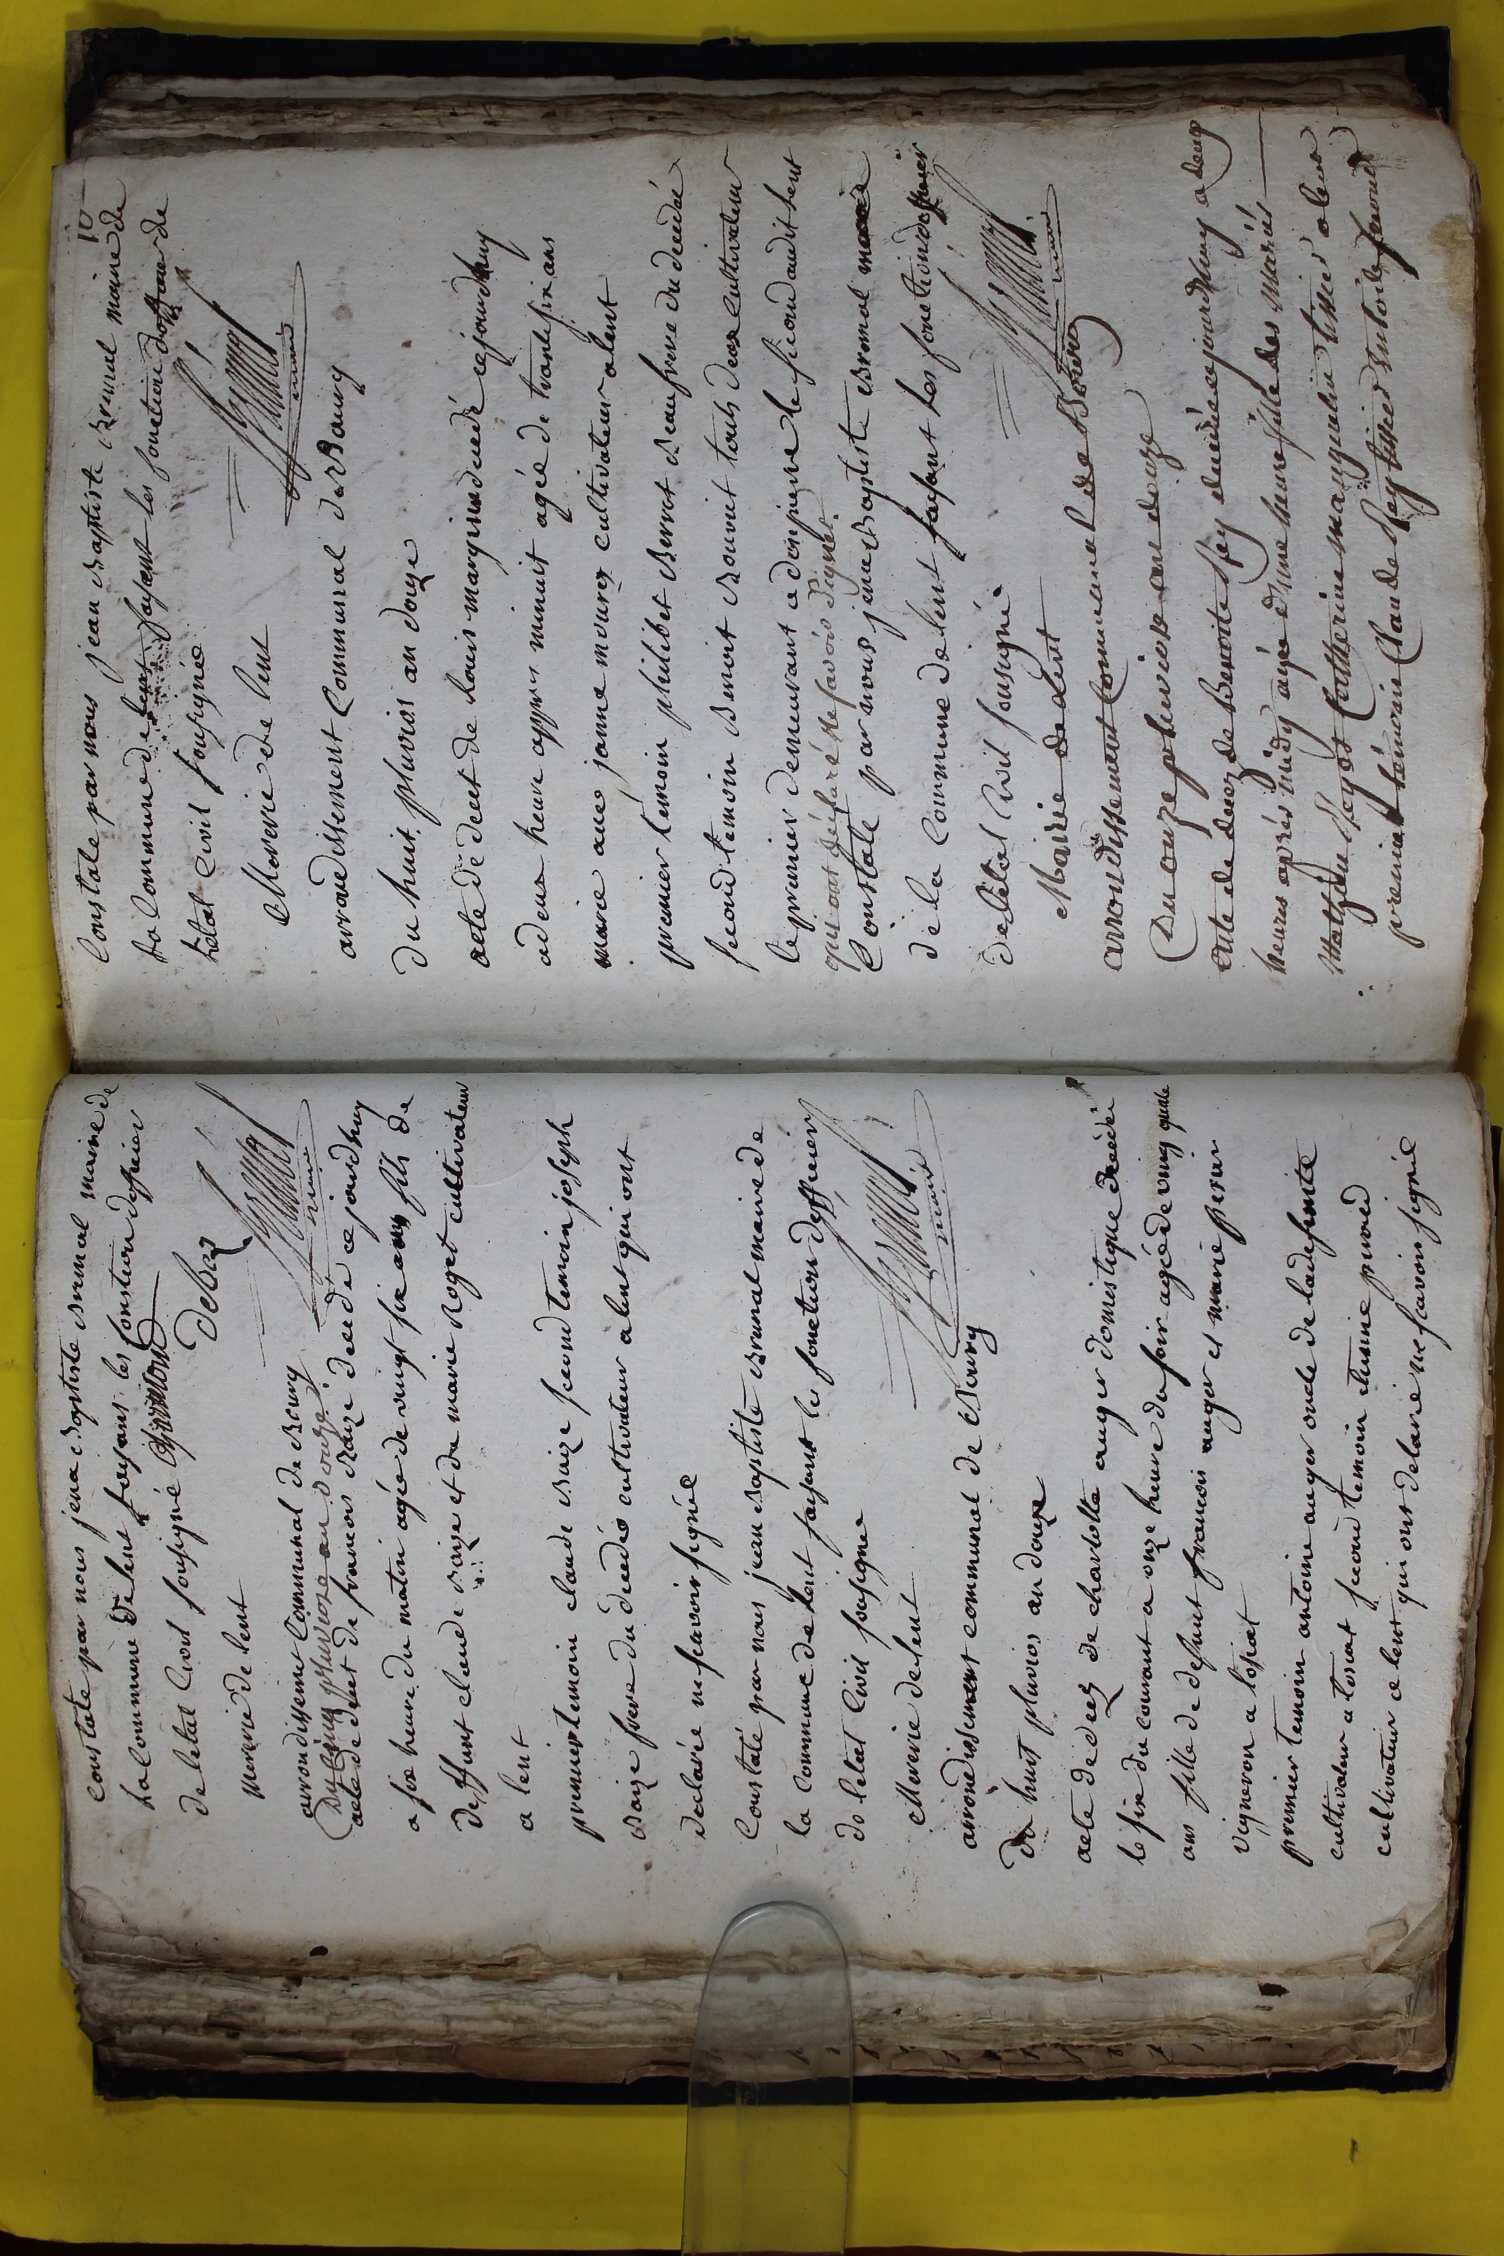 constate par nous jena Baptiste Brunal maire de
La Commune de lent faisant les fonction dofficier
de letat Civil sousigné
Debaz
Brunal
maire
mererie de lent
arrondissement Communal de Bourg
Du cinq pluviose an douze
acte de deset de francois Baize decede ce jourdhuy
a six heure du matin agée de vingt six ans fils de
deffunt claude Baize et de marie Roget cultivateur
a lent
premier temoin claude Baize second temoin joseph
Baize frere du decedés cultivateur a lent qui ont
declaré ne scavoir signée
Constaté par nous jean Baptiste Brunal maire de
la Commune de lent faisant les fonction dofficier
de letat Civil sousignee
Brunal
maire
Mererie de lent
arrondissement communal de Bourg
du huit pluvios an douze
acte de decez de charlotte auger domestique decedée
le six du courant a onze heure du soir agée de vingt quatre
ans fille de defunt francois auger et marie perier
vigneron a tosiat
premier temoin antoine auger oncle de la defunte
cultivateur a tosiat second temoin
cultivateur a lent qui ont delaré ne scavoir signée
10
Constate par nous jean Baptiste Brunal maire de
La Commune de lent faisant les fonction dofficier de
letat Civil sousignée
Brunal
maire
Mererie de lent
arrondissement Communal de Bourg
du huit pluvios an douze
acte de decet de louis marguin decedé ce jourdhuy
a deux heure appres minuit agée de trante six ans
marie avec janne mourez cultivateur a lent
premier temoin philibet Berrot Beaufrere du decedée
second temoin Benoit Bouvit touts deux cultivateur
le premier demeurant a donpierre le second audit lent
qui ont déclaré ne savoir Signer
Constate par nous jena Baptiste Brunal maire
de la Commune de lent faisant les fonction dofficier
de letat Civil sousigné
Brunal
maire
Mairie de Lent
arrondissement Communal de Bourg
Du onze pluviose an douze
Acte de decez de Benoite Rey décédée cejourdhuy a deux
heures après midy agée d'une heure fille des mariés
Mathieu Rey et Catherine manguelin tissier a lent
premier témoin Claude Rey tissier en toile second